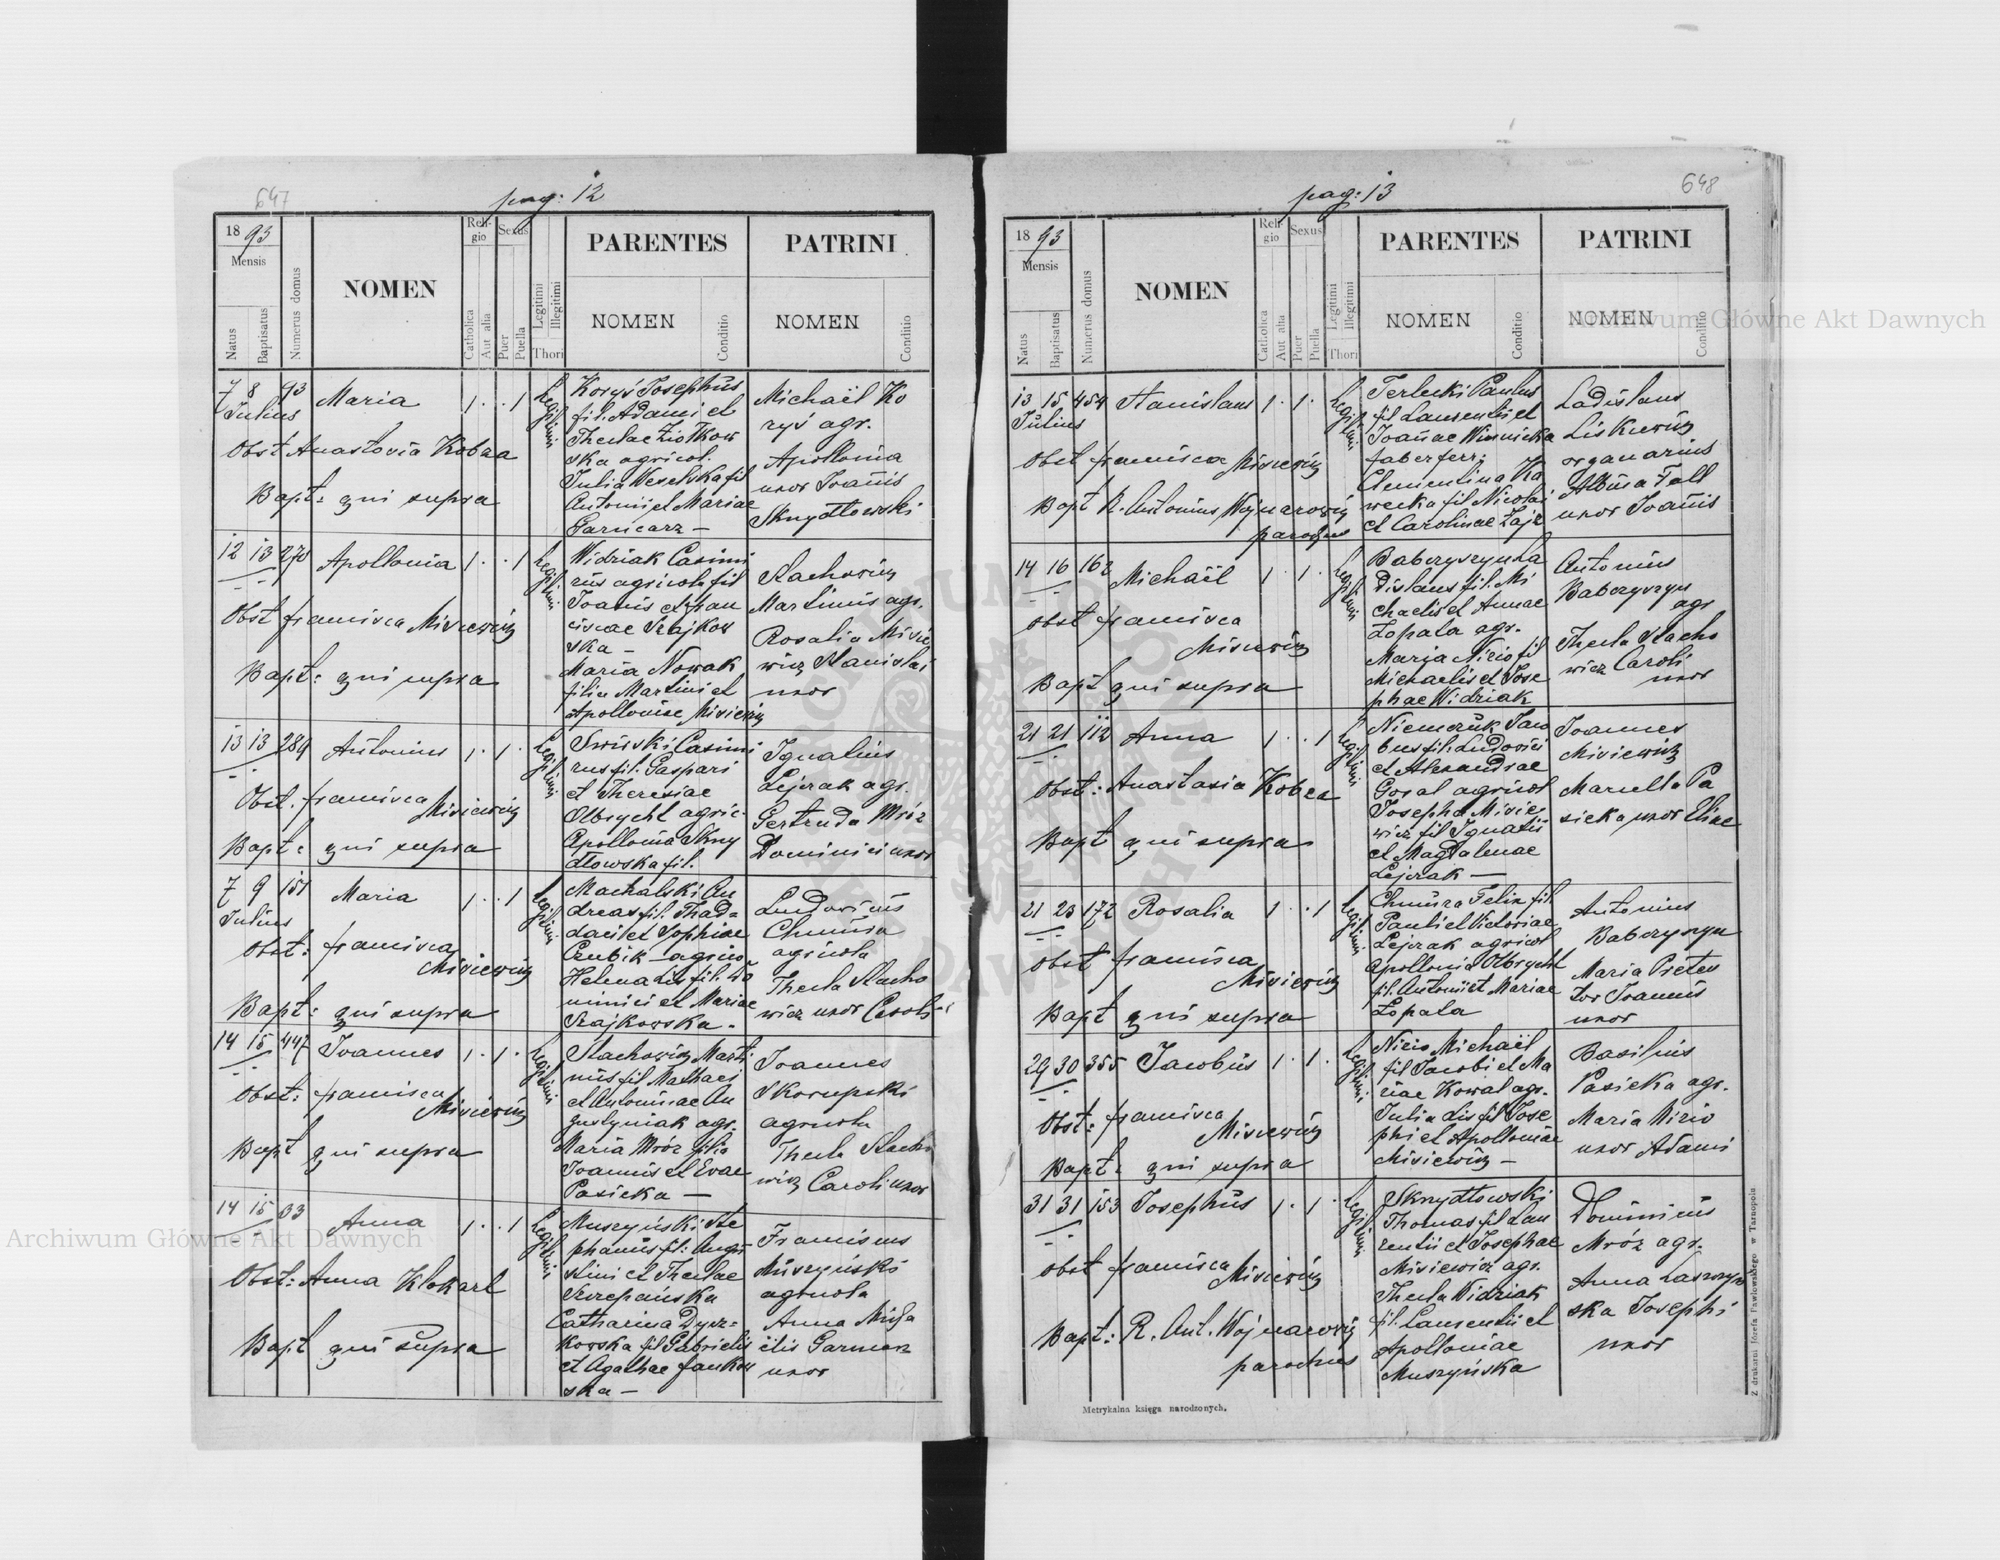 647
pag: 12
1893
Mensis
Natus
Baptisatus
Numerus domus
NOMEN
Religio
Catholica
Aut alia
Sexus
Puer
Puella
Legitimi
Illegitimi
Thori
PARENTES
NOMEN
Conditio
PATRINI
NOMEN
Conditio
7 8 93 Maria 1 . . 1 Legitimi
Julius
Obst Anastasia Kobza
Bapt: qui supra
Koryś Josephus
fil. Adami et
Theclae Ziółkow
ska agricol.
Julia Weselska fil
Antonii et Mariae
Garncarz —
Michaël Ko
ryś agr.
Apollonia
uxor Joannis
Skrydłowski
12 13 278 Apollonia 1 . . 1 Legitimi
Obst francisca Misiewicz
Bapt: qui supra
Widziak Casimi
rus agricola fil
Joanis et fran
ciscae Szajkow
ska —
Maria Nowak
filia Martini et
Apolloniae Misiewicz
Stachowicz
Martinus agr.
Rosalia Misie
wicz Stanislai
uxor
13 13 289 Antonius 1 . 1 . Legitimi
Obst. francisca Misiewicz
Bapt: qui supra
Swirski Casimi
rus fil. Gaspari
et Theresiae
Olbrycht agric.
Apollonia Skry
dłowska fil.
Ignatius
Lejczak agr.
Gertruda Mróz
Dominici uxor
7 9 151 Maria 1 . . 1 Legitimi
Julius
Obst: francisca
Misiewicz
Bapt: qui supra
Machalski An
dreas fil. Thad=
daei et Sophiae
Czubik agrico
Helena Lis fil. Do
minici et Mariae
Szajkowska.
Ludovicus
Chmura
agricola
Thecla Stacho
wicz uxor Caroli
14 15 447 Joannes 1 . 1 . Legitimi
Obst: francisca
Misiewicz
Bapt qui supra
Stachowicz Marti
nus fil Mathaei
et Antoniae Au
gustyniak agr.
Maria Mróz filia
Joannis et Evae
Pasieka —
Joannes
Skorupski
agricola
Thecla Stacho
wicz Caroli uxor
14 15 33 Anna 1 . . 1 Legitimi
Obst: Anna Klokarl
Bapt qui supra
Muszyński Ste
phanus fil: Augu
stini et Theclae
Szczepańska
Catharina Dycz=
kowska fil Gabrielis
et Agathae Jankow
ska —
Franciscus
Muszyński
agricola
Anna Micha
ëlis Garncarz
uxor
648
pag: 13
1893
Mensis
Natus
Baptisatus
Numerus domus
NOMEN
Religio
Catholica
Aut alia
Sexus
Puer
Puella
Legitimi
Illegitimi
Thori
PARENTES
NOMEN
Conditio
PATRINI
NOMEN
Conditio
13 15 454 Stanislaus 1 . 1 . Legitimi
Julius
Obst francisca Misiewicz
Bapt R. Antonius Wojnarowicz
parochus
Terlecki Paulus
fil Laurentii et
Joannae Winnicka
faber ferr:
Clementina Ka
wecka fil Nicolai
et Carolinae Zając
Ladislaus
Liskiewicz
organarius
Albina Fall
uxor Joannis
14 16 162 Michaël 1 . 1 . Legitimi
Obst francisca
Misiewicz
Bapt qui supra
Babczyszyn La
dislaus fil. Mi
chaelis et Annae
Łopata agr.
Maria Nizio fil
Michaelis et Jose
phae Widziak
Antonius
Babczyszyn
agr
Thecla Stacho
wicz Caroli
uxor
21 21 112 Anna 1 . . 1 Legitimi
Obst: Anastasia Kobza
Bapt qui supra
Niemczuk Jaco
bus fil. Ludovici
et Alexandrae
Goral agricol
Josepha Misie
wicz fil Ignatii
et Magdalenae
Lejczak —
Joannes
Misiewicz
Marcella Pa
sieka uxor Eliae
21 23 172 Rosalia 1 . . 1 Legitimi
Obst francisca
Misiewicz
Bapt qui supra
Chmura Felix fil.
Pauli et Victoriae
Lejczak agricol
Apollonia Olbrycht
fil. Antonii et Mariae
Łopata
Antonius
Babczyszyn
Maria Pietru
Joannis
uxor
29 30 355 Jacobus 1 . 1 . Legitimi
Obst: francisca
Misiewicz
Bapt: qui supra
Nizio Michaël
fil Jacobi et Ma
riae Kowal agr.
Julia Lis fil Jose
phi et Apolloniae
Misiewicz —
Basilius
Pasieka agr.
Maria Nizio
uxor Adami
31 31 153 Josephus 1 . 1 . Legitimi
Obst francisca
Misiewicz
Bapt: R. Ant. Wojnarowicz
parochus
Skrzydłowski
Thomas fil Lau
rentii et Josephae
Misiewicz agr.
Thecla Widziak
fil. Laurentii et
Apolloniae
Muszyńska
Dominicus
Mróz agr.
Anna Laszczyń
ska Josephi
uxor
Metrykalna księga narodzonych.
Z drukarni Józefa Pawłowskiego w Tarnopolu.
Archiwum Główne Akt Dawnych
Archiwum Główne Akt Dawnych